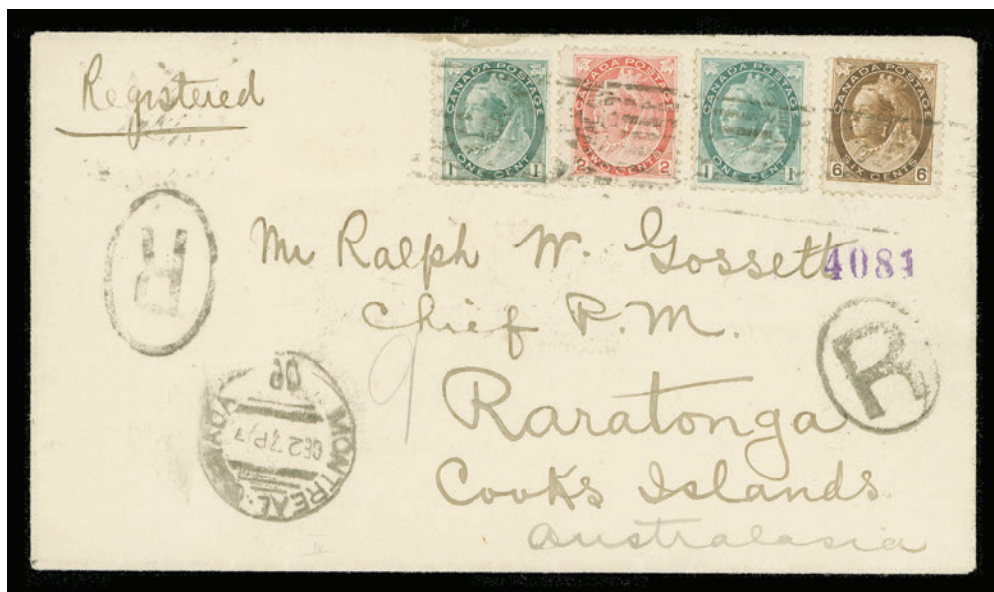 Registered
CANADA POSTAGE
1 ONE CENT 1
CANADA POSTAGE
2 TWO CENTS 2
CANADA POSTAGE
1 ONE CENT 1
CANADA POSTAGE
6 SIX CENTS 6
R
Mr Ralph W. Gossett
4081
Chief P.M.
R
Raratonga
MONTREAL. CANADA
Cooks Islands
Australasia